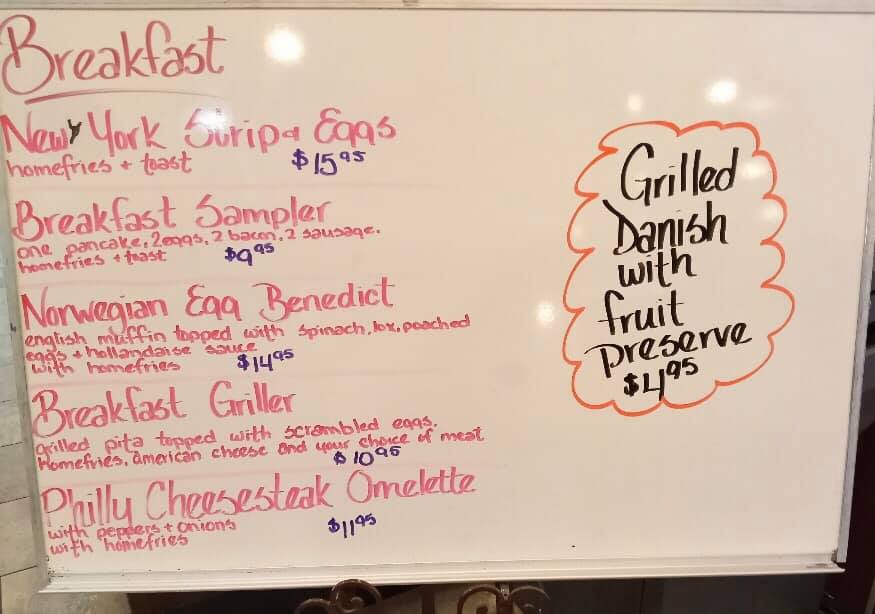 Breakfast
New York Strip & Eggs
homefries + toast $15.95
Breakfast Sampler
one pancake, 2 eggs, 2 bacon, 2 sausage.
homefries + toast $9.95
Norwegian Egg Benedict
english muffin topped with spinach, lox, poached
eggs + hollandaise sauce
with homefries $14.95
Breakfast Griller
grilled pita topped with scrambled eggs,
Homefries, american cheese and your choice of meat
$10.95
Philly Cheesesteak Omelette
with peppers + onions $11.95
with homefries
Grilled
Danish
with
fruit
Preserve
$4.95